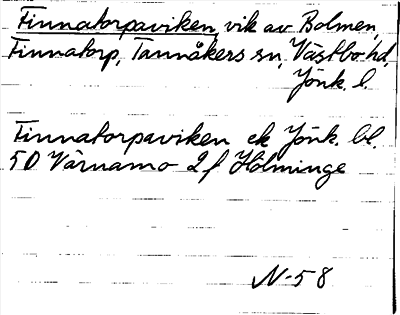 Finnatorpaviken, vik av Bolmen,
Finnatorp, Tannåkers sn, Västbo hd,
Jönk. l.
Finnatorpaviken ek Jönk. bl
5D Värnamo 2f Holminge
N-58